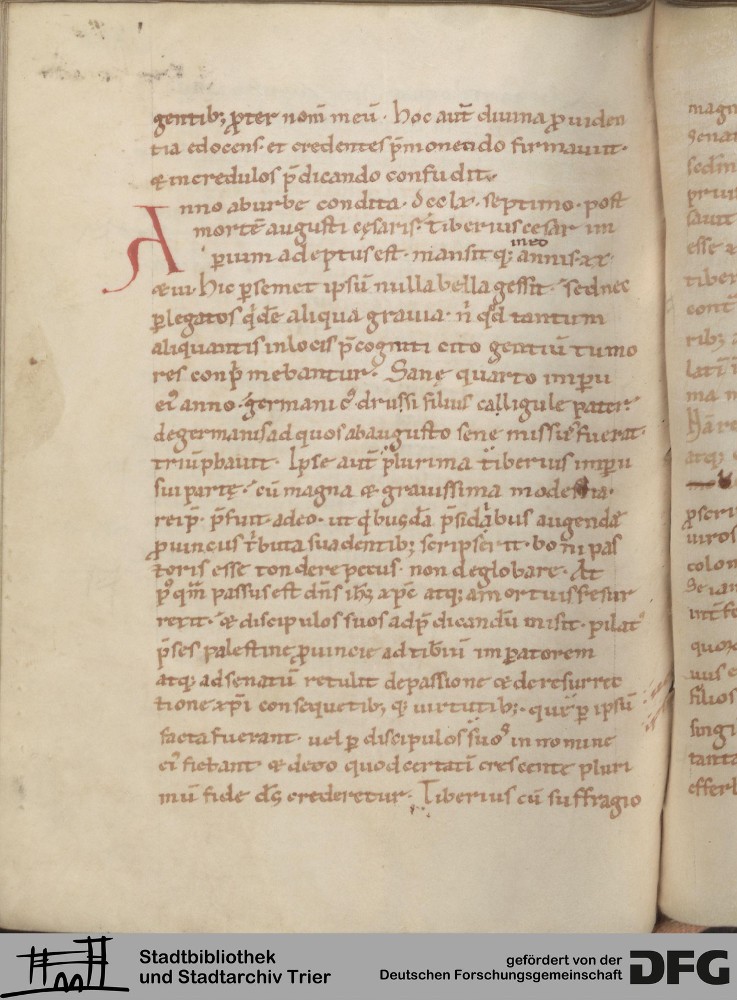 gentib; ꝓpter nom̄ meū. hoc aut̄ diuina ꝓuiden
tia edocens. et credentes p̄monendo firmauit.
& incredulos p̄dicando confudit.
Anno ab urbe condita. dcclx. septimo. post
mortē augusti cęsaris. tiberius cesar im
ꝑium adeptus est. mansit q; in eo annis. xx.
& iii. hic ꝑsemet ipsū nulla bella gessit. sed nec
ꝑ legatos qidē aliqua grauia. n̄ qd tantum
aliquantis in locis p̄cogniti cito gentiū tumo
res conp̄mebantur. Sanę quarto imꝑii
ei᷒ anno. germanic᷒ drussi filius calligule pater.
de germanis ad quos ab augusto sene missus fuerat.
triūphauit. Ipse aut̄ plurima tiberius imꝑii
sui partę. cū magna & grauissima modestia.
reip̄. p̄fuit. adeo. ut qibusdā p̄sidibus augenda
ꝓuinciis tͥbuta suadentib; scripserit. boni pas
toris esse tondere pecus. non deglobare. At
p᷒qm̄ passus est dn̄s ihs xp̄c atq; a mortuis resur
rexit. & discipulos suos ad p̄dicandū misit. pilat᷒
p̄ses palestine ꝓuincie ad tib̄iū imꝑatorem
atq; ad senatū retulit de passione & de resurrec
tione xp̄i consequetib; q; uirtutib;. que ꝑ ipsū
facta fuerant. uel ꝑ discipulos suos in nomine
ei᷒ fiebant. & de eo quod certatī crescente pluri
mū fide ds̄ crederetur. Tiberius cū suffragio
magn
senat
sedīn
priui
sauit
esse &
tiber
cont̄
rib;
latī
ma
atq;
ꝓscri
uiros
colon
De ian
quor
uus e
filios
surgi
tanta
efferb
Stadtbibliothek
und Stadtarchiv Trier
gefördert von der
Deutschen Forschungsgemeinschaft
DFG